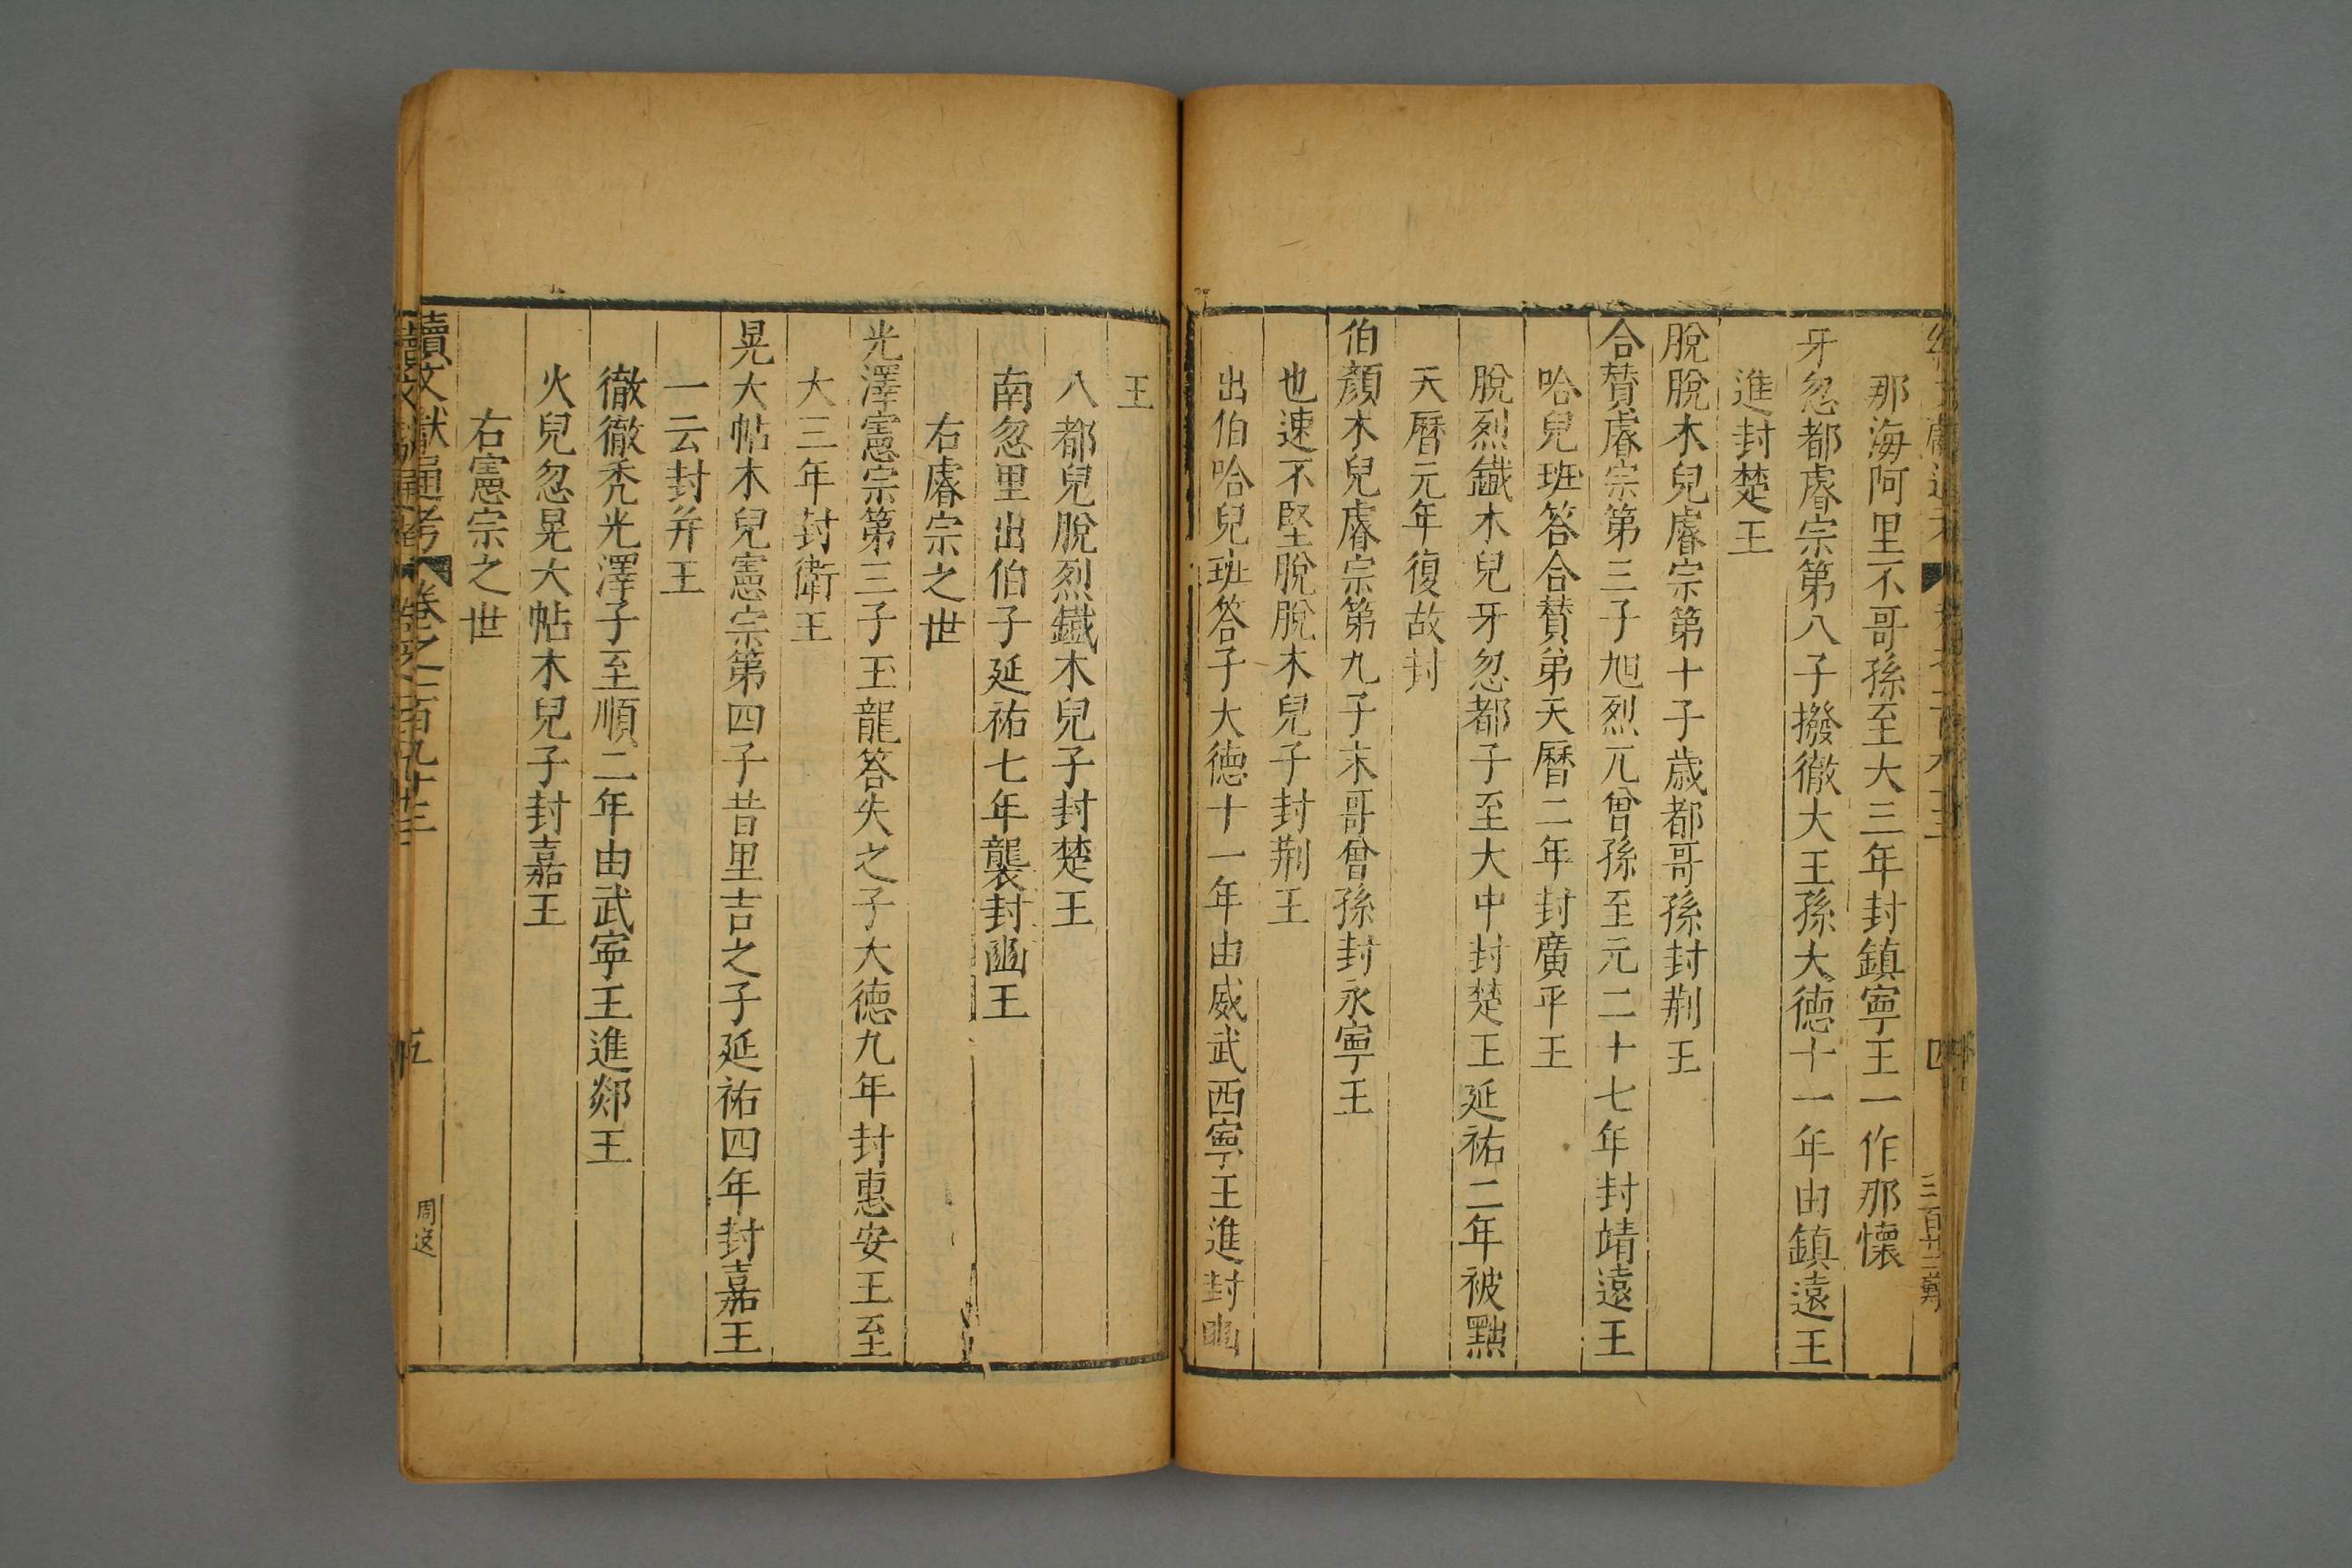 那海阿里不哥孫至大三年封鎮寧王一作那懷
牙忽都睿宗第八子撥徹大王孫大德十一年由鎮遠王
進封楚王
脫脫木兒睿宗第十子歲都哥孫封荆王
合賛睿宗第三子旭烈兀曾孫至元二十七年封靖遠王
哈兒班答合賛弟天曆二年封廣平王
脫烈鐵木兒牙忽都子至大中封楚王延祐二年被黜
天曆元年復故封
伯顏木兒睿宗第九子末哥曾孫封永寧王
也速不堅脫脫木兒子封荆王
出伯哈兒班答子大德十一年由威武西寧王進封豳
王
八都兒脫烈鐵木兒子封楚王
南忽里出伯子延祐七年襲封豳王
右睿宗之世
光澤憲宗第三子玉龍答失之子大德九年封惠安王至
大三年封衛王
晃大帖木兒憲宗第四子昔里吉之子延祐四年封嘉王
一云封并王
徹徹禿光澤子至順二年由武寧王進郯王
火兒忽晃大帖木兒子封嘉王
右憲宗之世
續文獻通考 卷之二百九十三
五